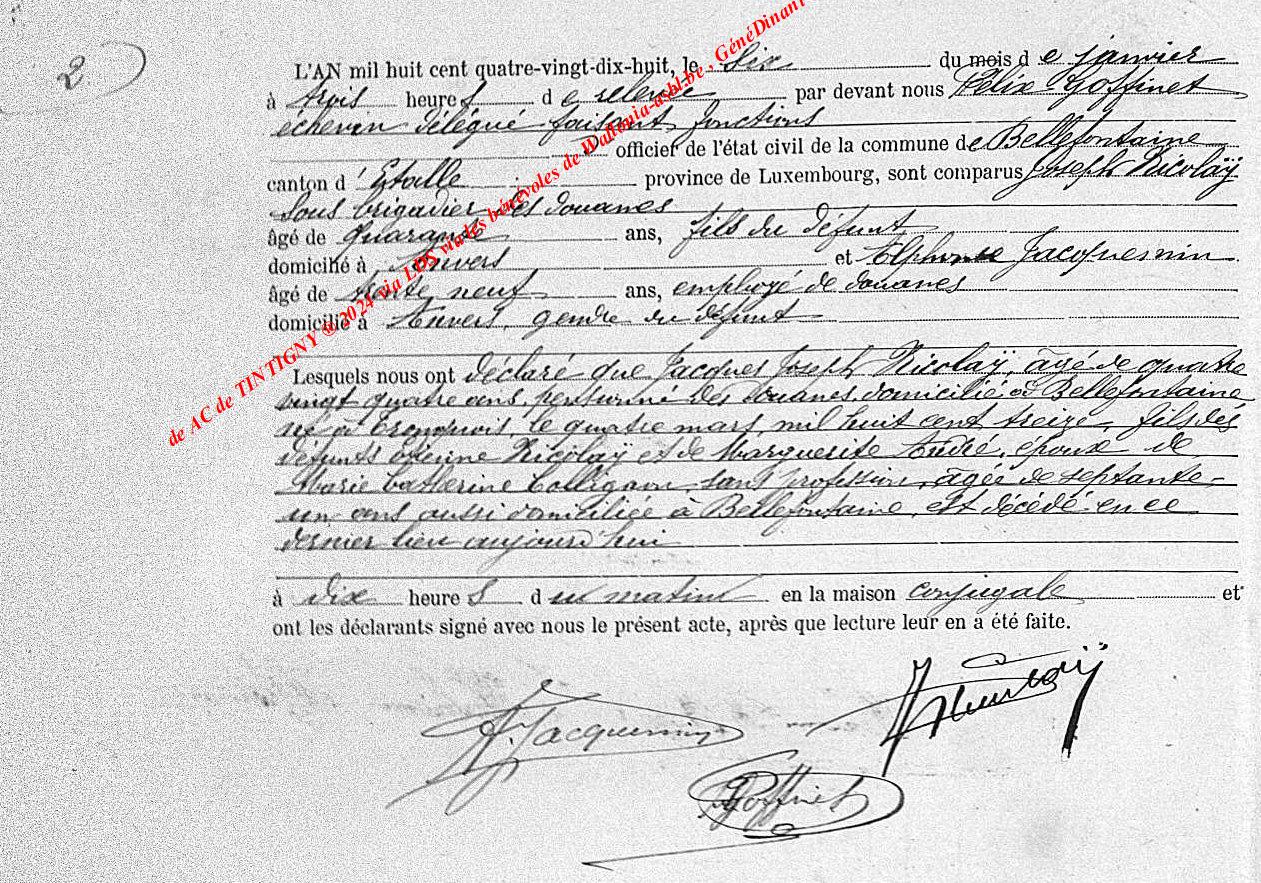 2)
L'AN mil huit cent quatre-vingt-dix-huit, le six du mois de janvier
à trois heures de relevée par devant nous Félix Goffinet
échevin délégué faisant fonctions
officier de l'état civil de la commune de Bellefontaine
canton d'Etalle province de Luxembourg, sont comparus Joseph Nicolaÿ
sous brigadier des douanes
âgé de quarante ans, fils du défunt
domicilié à Anvers et Alphonse Jacquemin
âgé de trente neuf ans, employé de douanes
domicilié à Anvers, gendre du défunt
Lesquels nous ont déclaré que Jacques Joseph Nicolaÿ, âgé de quatre
vingt quatre ans, pensionné des douanes, domicilié à Bellefontaine
né à le quatre mars, mil huit cent treize, fils des
défunts Nicolaÿ et de Marguerite André, époux de
Marie Catherine Colligon, sans profession, âgée de septante-
un ans aussi domiciliée à Bellefontaine, est décédé en ce
dernier lieu aujourd'hui
à dix heures du matin en la maison conjugale et
ont les déclarants signé avec nous le présent acte, après que lecture leur en a été faite.
A. Jacquemin
Nicolaÿ
Goffinet
de AC de TINTIGNY ® 2024 via LDS via les bénévoles de Wallonia-asbl.be , GénéDinant